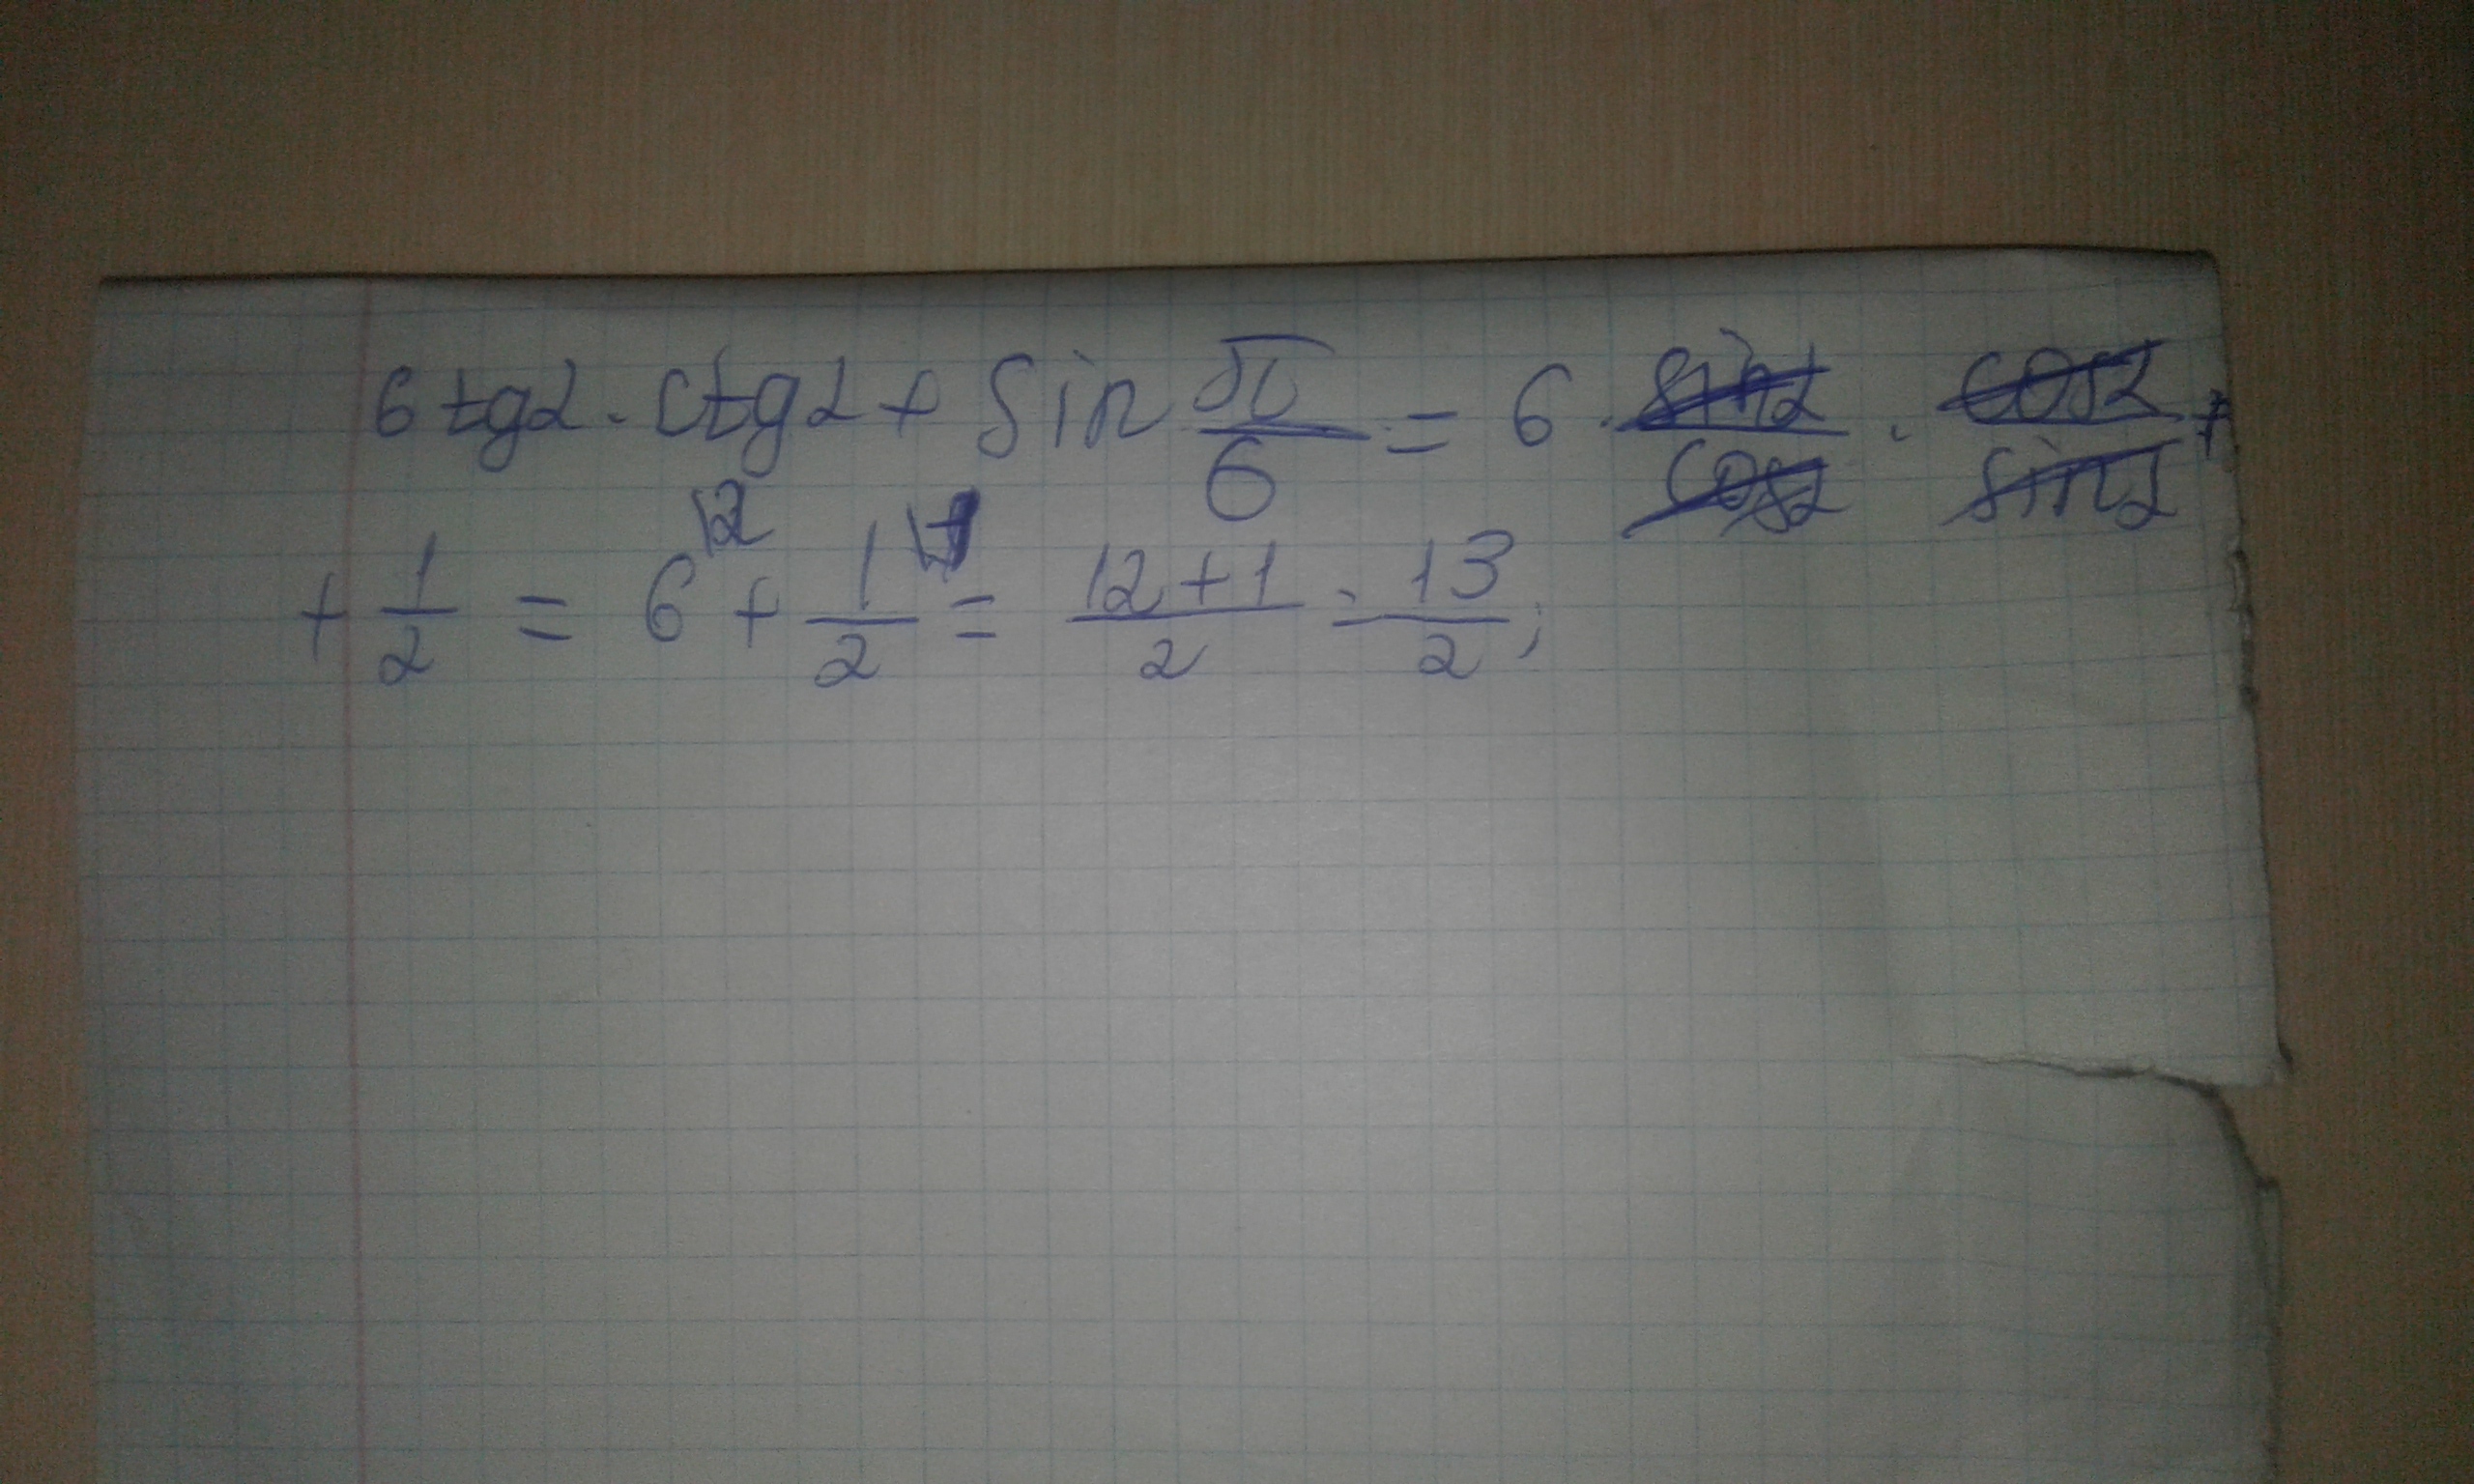 6tg2·ctg2+sin π/6 = 6·sin2/cos2·cos2/sin2+
+1/2=6\2+1/2\1=12+1/2=13/2;